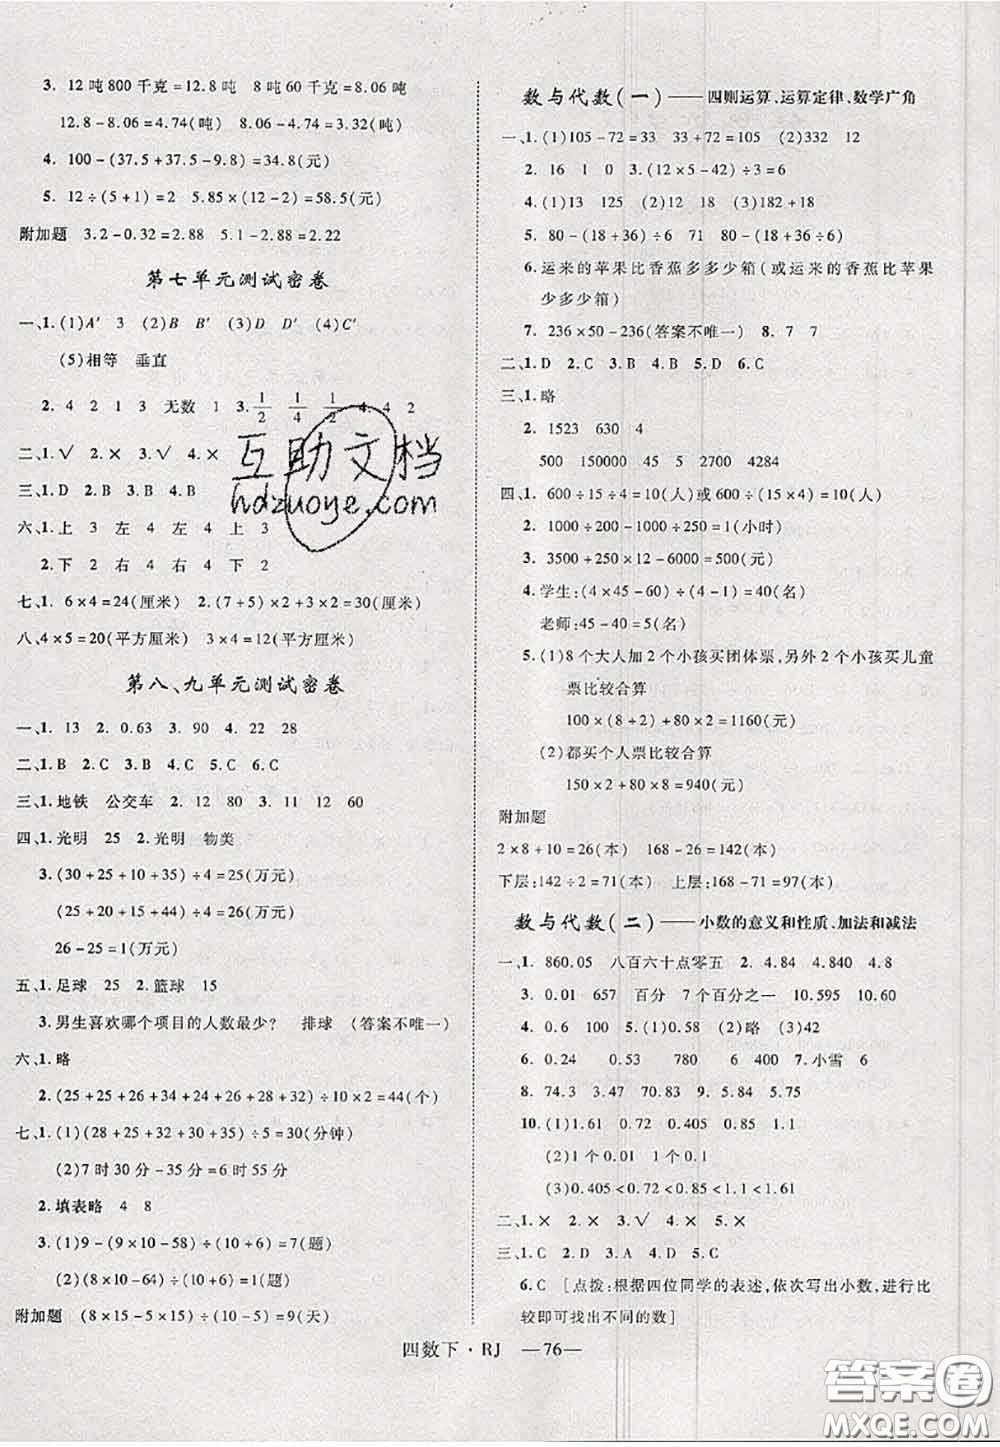 3. 12吨800千克=12.8吨　8吨60千克=8.06吨
12.8-8.06=4.74(吨)　8.06-4.74=3.32(吨)
4. 100-(37.5+9.37-18.8)=34.8(元)
5. 12÷(5+1)=2　5.85×(12-2)=58.5(元)
附加题　3.2-0.32=2.88　5.1-2.88=2.22
第七单元测试密卷
一、1.(1)A′　3　(2)B　B′　(3)D　D′　(4)C′
(5)相等　垂直
2. 4　2　1　3　无数　1　3. 1/2　1/4　1/2　4. 4　2
二、1.√　2.×　3.√　4.×
三、1.D　2.B　3.D　4.B
六、1.上　3　左　4　左　4　上　3
2.下　2　右　4　右　4　下　2
七、1. 6×4=24(厘米)　2.(7+5)×2+3×2=30(厘米)
八、4×5=20(平方厘米)　3×4=12(平方厘米)
第八、九单元测试密卷
一、1. 13　2. 0.63　3. 90　4. 22　28
二、1.B　2.C　3.B　4.B　5.C　6.C
三、1.地铁　公交车　2. 12　80　3. 11　12　60
四、1.光明　25　2.光明　物美
3.(30+25+10+35)÷4=25(万元)
(25+20+27+32)÷4=26(万元)
26-25=1(万元)
五、1.足球　25　2.篮球　15
3.男生喜欢哪个项目的人数最少?　排球　(答案不唯一)
六、1.略
2.(25+25+26+34+24+26+25+31)÷10×2=44(个)
七、1.(1)(28+25+32+30+35)÷5=30(分钟)
(2)7时30分-35分=6时55分
2.填表略　4　8
3.(1)9-(9×10-58)÷(6+10)=7(题)
(2)(8×10-64)÷(10+6)=1(题)
附加题　(8×15-5×15)÷(10-5)=9(天)
数与代数(一)——四则运算、运算定律、数学广角
一、1.(1)105-72=33　33+72=105　(2)332　12
2. 16　1　0　3. 30　(12×5-42)÷3=6
4.(1)13　125　(2)2　8　(3)182+18
5. 80-(18+36)÷6　71　80-(18+36÷6)
6.运来的苹果比香蕉多多少箱(或运来的香蕉比苹果
少多少箱)
7. 236×50-236(答案不唯一)　8. 7　7
二、1.D　2.C　3.B　4.B　5.D　6.C
三、1.略
2. 1523　630　4
500　150000　45　5　2700　4284
四、1. 600÷15÷4=10(人)或600÷(15×4)=10(人)
2. 1000÷200-1000÷250=1(小时)
3. 3500+250×12-6000=500(元)
4.学生:(4×45-60)÷(4-1)=40(名)
老师:45-40=5(名)
5.(1)8个大人加2个小孩买团体票,另外2个小孩买儿童
票比较合算
100×(8+2)+80×2=1160(元)
(2)都买个人票比较合算
150×2+80×8=940(元)
附加题
2×8+10=26(本)　168-26=142(本)
下层:142÷2=71(本)　上层:168-71=97(本)
数与代数(二)——小数的意义和性质、加法和减法
一、1. 860.05　八百六十点零五　2. 4.84　4.840　4.8
3. 0.01　657　百分　7个百分之一　10.5　10.60
4. 0.6　100　5.(1)4　(2)略　(3)42
6. 0.24　0.53　780　6　400　7.小雪　6
8. 74.3　3.87　70.83　9. 5.4　5.75
10.(1)1.61　0.72　0.405　0.85　1.1
(2)1个0.01　1个0.1
(3)0.405<0.72<0.85<1.1<1.61
二、1.×　2.×　3.√　4.×　5.×
三、1.C　2.D　3.A　4.D　5.C
6.C　[点拨:根据四位同学的表述,依次写出小数,进行比
较即可找出不同的数]
四数下·RJ　—76—
互助文档
hdzuoye.com
答案圈
MXQE.COM